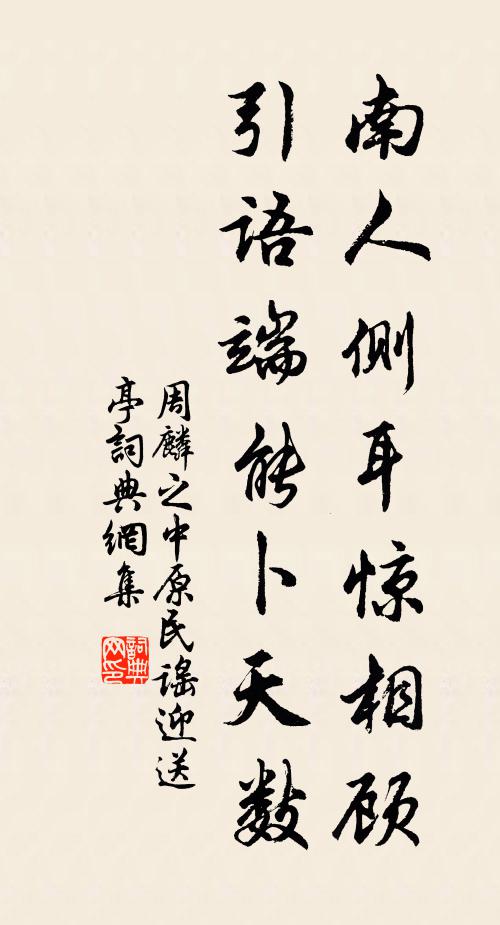 南人侧耳惊相顾
引语端能卜天数
周麟之中原民谣迎送
亭詞典網集
詞典网印